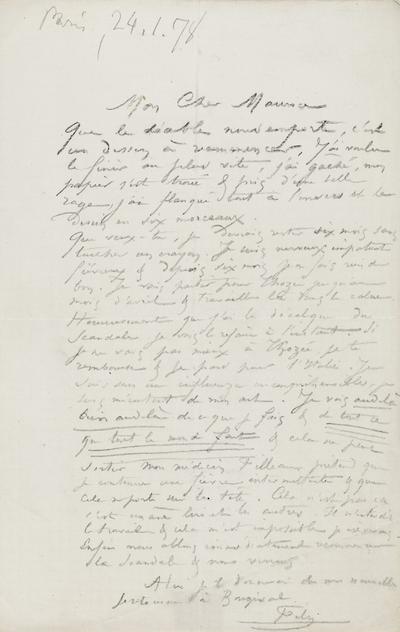 Paris, 24.1.78
Mon Cher Maurice
Que le diable nous emporte, c'est
un dessin à recommencer, J'ai voulu
le finir au plus vite, j'ai gâché, mon
papier s'est troué & pris d'une telle
rage, j'ai flanqué tout à l'envers et le
Dessin en six morceaux.
Que veux-tu, je devrais rester six mois sans
toucher un crayon. Je suis nerveux impatient
fiévreux & depuis six mois je ne fais rien de
bon. Je vais partir pour Thozée jusqu'au
mois d'avril & travailler là dans le calme.
Heureusement que j'ai le décalque du
Scandale je vais le refaire à l'instant. Si
je ne vais pas mieux à Thozée je te
rembourse & je pars pour l'Italie. Je
suis sous une influence incompréhensible, je
suis mécontent de mon art. Je vois au-delà
bien au-delà de ce que je fais & de tout ce
que tout le monde fait & cela ne peut
sortir. Mon médecin Filleau prétend que
je continue une fièvre intermittente & que
cela se porte sur la tête. Cela n'est pas ça
c'est un
le travail & cela m'est impossible je
Enfin nous allons immédiatement recommencer
le Scandale & nous verrons
A toi je te donnerai de mes nouvelles
je retourne à Bougival.